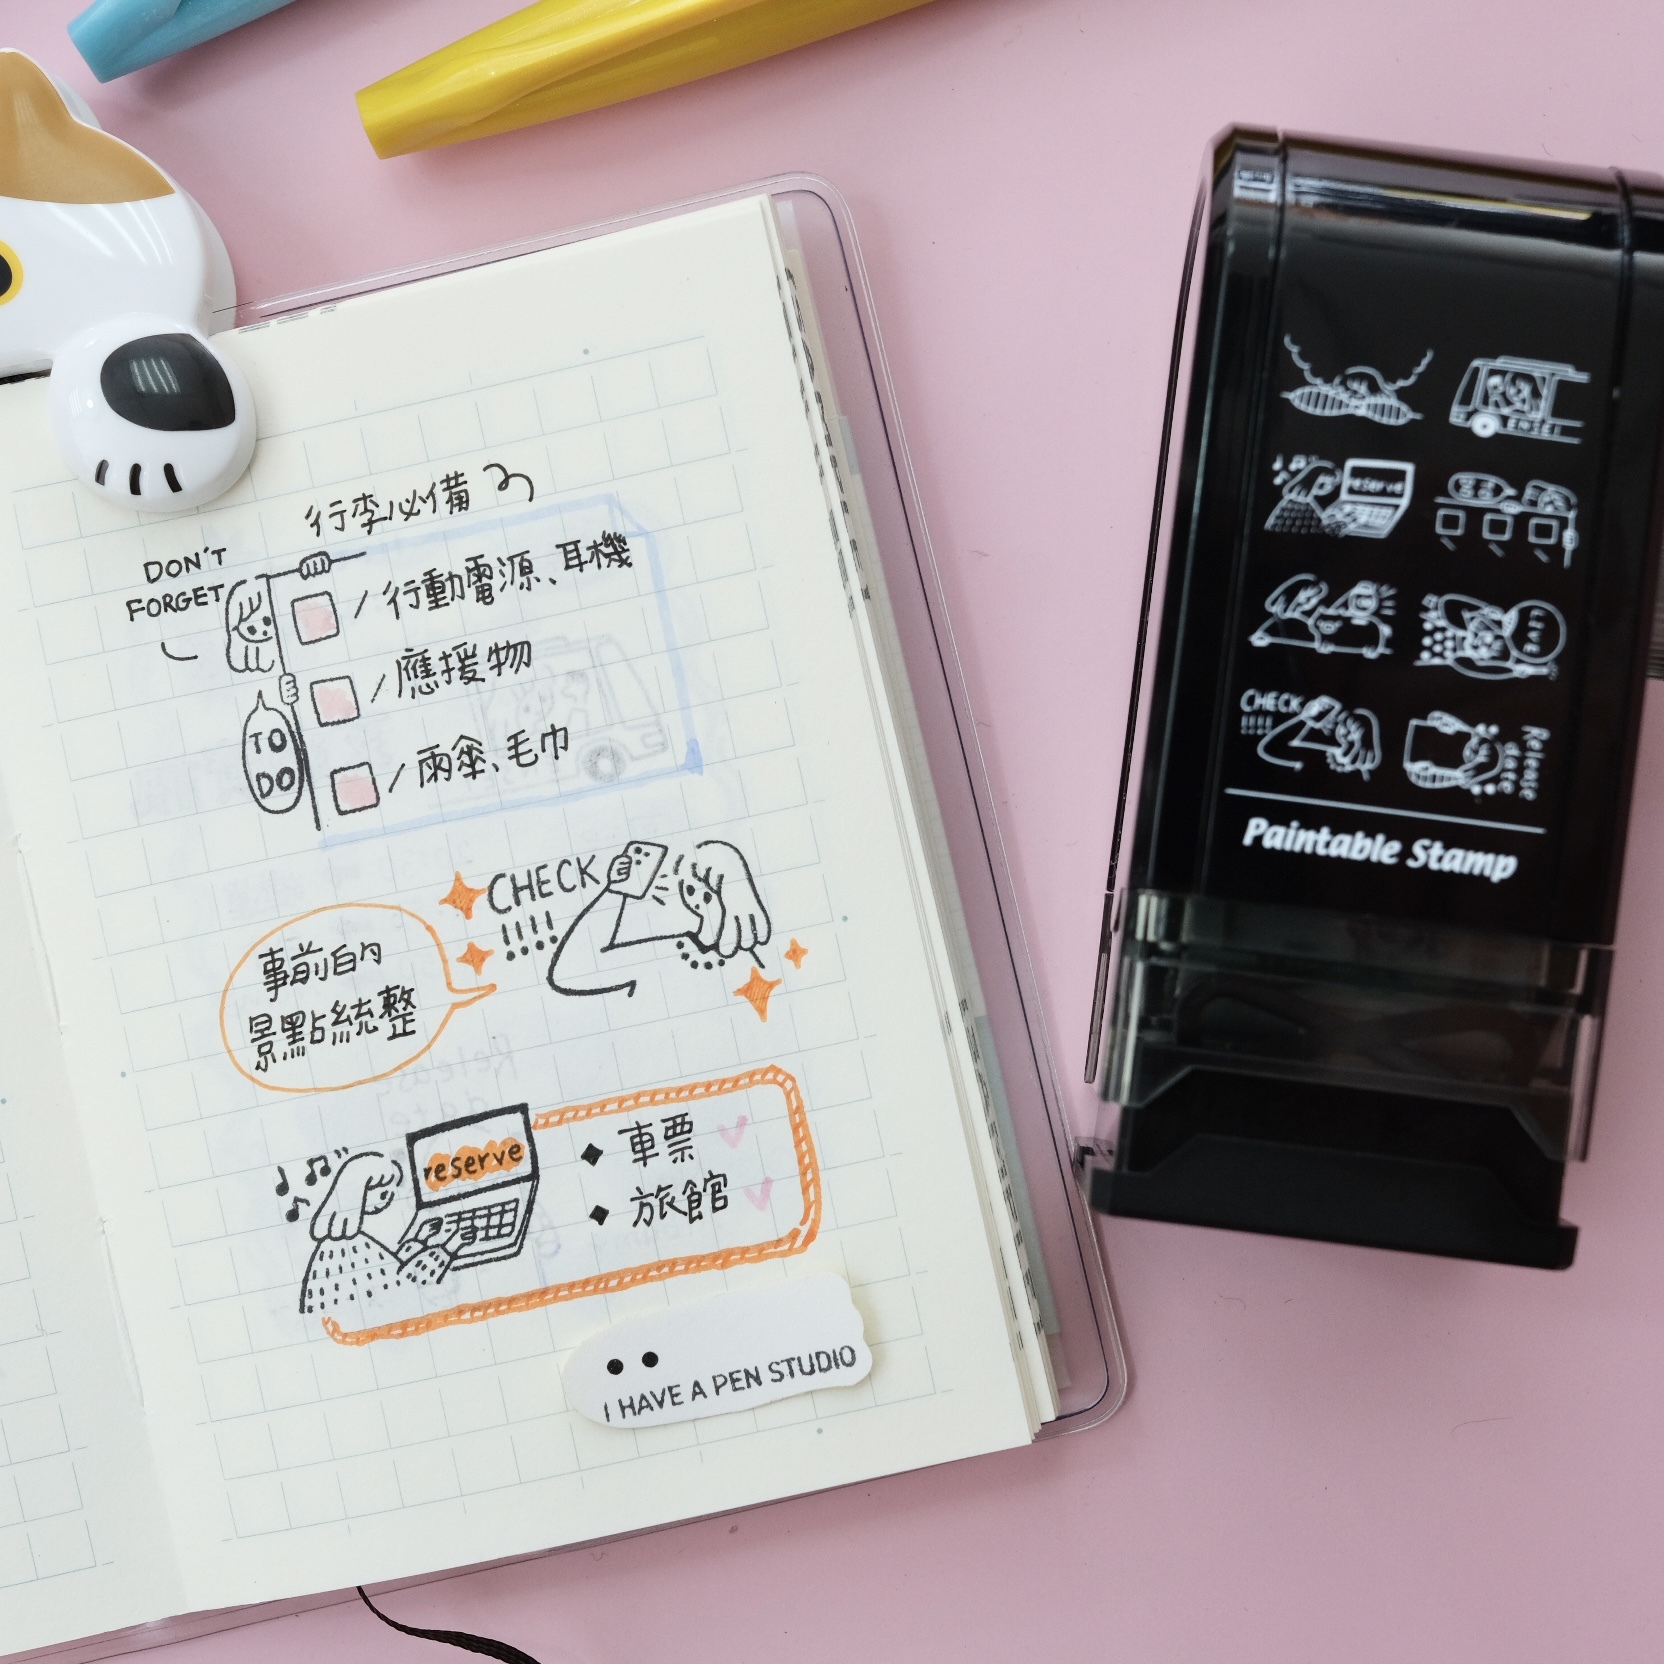 行李必備
DON'T
FORGET
/ 行動電源、耳機
/ 應援物
/ 雨傘、毛巾
TO
DO
CHECK
!!!!
事前的
景點統整
reserve
◆ 車票
◆ 旅館
I HAVE A PEN STUDIO
ENSEI
reserve
LIVE
CHECK
!!!!
Release
date
Paintable Stamp